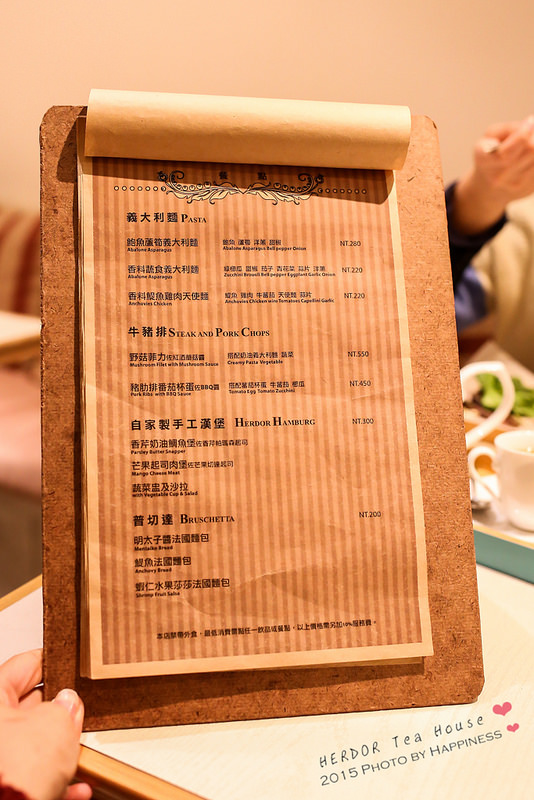 餐 點
義大利麵 PASTA
鮑魚蘆筍義大利麵 鮑魚 蘆筍 洋蔥 甜椒 NT.280
Abalone Asparagus Abalone Asparagus Bell pepper Onion
香料蔬食義大利麵 綠櫛瓜 甜椒 茄子 杏花菜 蒜片 洋蔥 NT.220
Abalone Asparagus Zucchini Brousli Bell pepper Eggplant Garlic Onion
香料鯷魚雞肉天使麵 鯷魚 雞肉 牛蕃茄 天使麵 蒜片 NT.220
Anchovies Chicken Anchovies Chicken wino Tomatoes Capellini Garlic
牛豬排 STEAK AND PORK CHOPS
野菇菲力佐紅酒蘑菇醬 搭配奶油義大利麵 蔬菜 NT.550
Mushroom Filet with Mushroom Sauce Creamy Pasta Vegetable
豬肋排番茄杯蛋佐BBQ醬 搭配蕃茄杯蛋 牛蕃茄 櫛瓜 NT.450
Pork Ribs with BBQ Sauce Tomato Egg Tomato Zucchini
自家製手工漢堡 HERDOR HAMBURG NT.300
香芹奶油鯛魚堡佐香芹帕瑪森起司
Parsley Butter Snapper
芒果起司肉堡佐芒果切達起司
Mango Cheese Meat
蔬菜盅及沙拉
with Vegetable Cup & Salad
普切達 BRUSCHETTA NT.200
明太子醬法國麵包
Mentaiko Bread
鯷魚法國麵包
Anchovy Bread
蝦仁水果莎莎法國麵包
Shrimp Fruit Salsa
本店禁帶外食，最低消費需點任一飲品或餐點。以上價格需另加10%服務費。
HERDOR Tea House
2015 PHOTO BY HAPPINESS